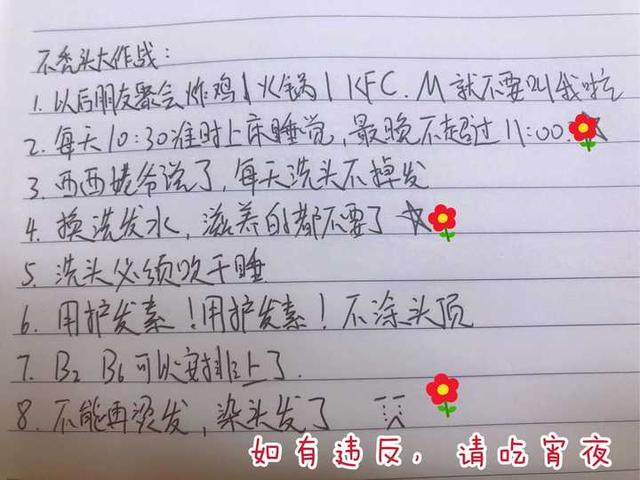 不秃头大作战：
1. 以后朋友聚会炸鸡|火锅|KFC. M就不要叫我啦
2. 每天10:30准时上床睡觉,最晚不超过11:00.
3. 西西姥爷说了,每天洗头不掉发
4. 换洗发水,滋养的都不要了
5. 洗头必须吹干睡
6. 用护发素!用护发素!不涂头顶
7. B2 B6可以安排上了.
8. 不能再烫发,染头发了
如有违反，请吃宵夜